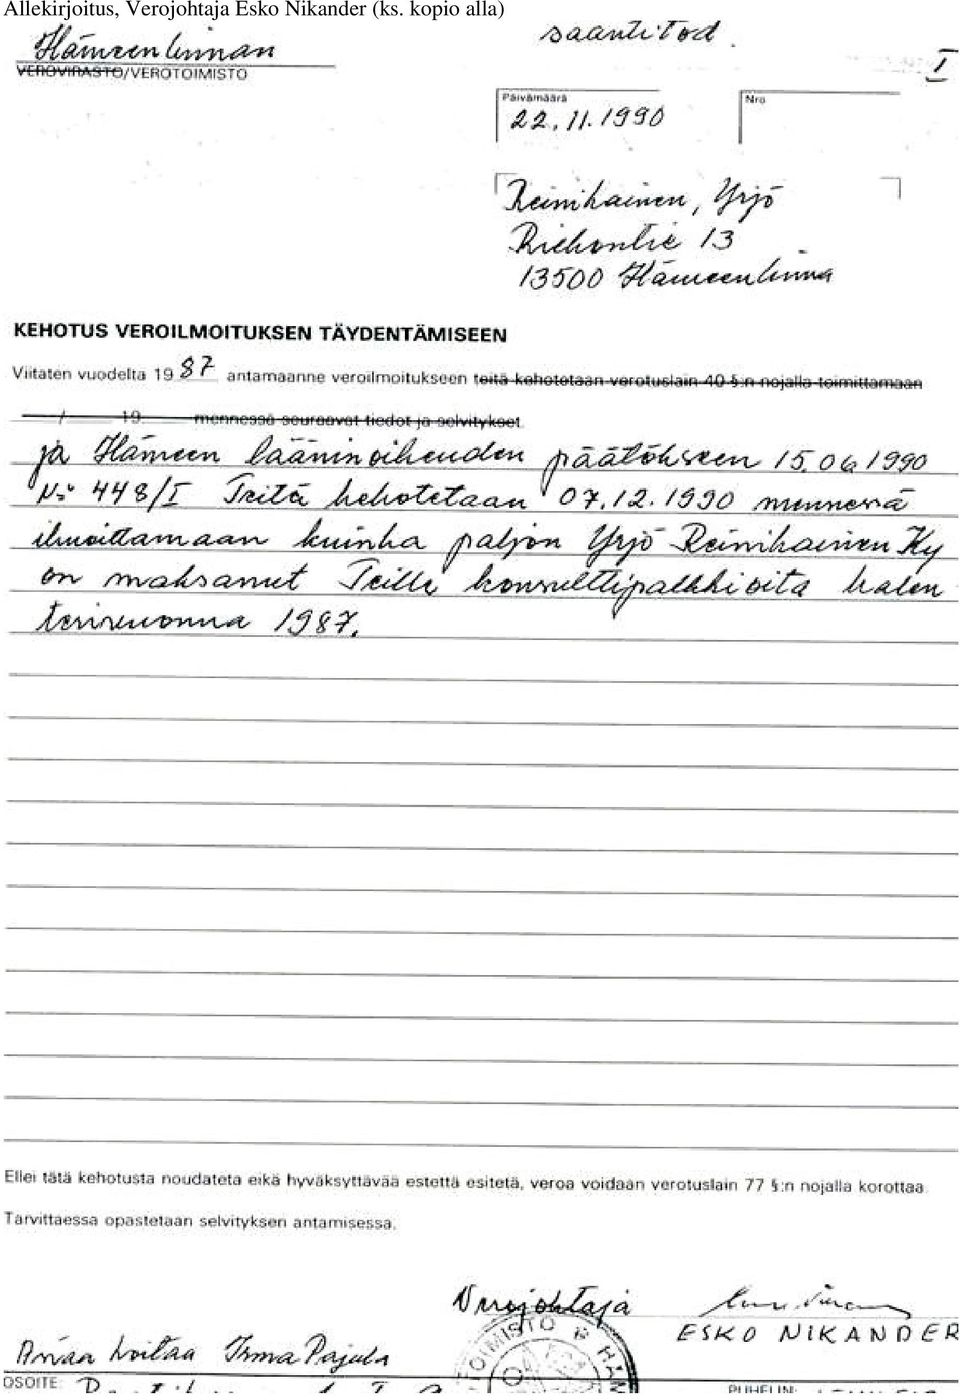 Allekirjoitus, Verojohtaja Esko Nikander (ks. kopio alla)
Hämeenlinnan
saantitod.
VEROVIRASTO/VEROTOIMISTO
I
Päivämäärä
Nro
22.11.1990
Reinikainen, Yrjö
Riekontie 13
13500 Hämeenlinna
KEHOTUS VEROILMOITUKSEN TÄYDENTÄMISEEN
Viitaten vuodelta 1987 antamaanne veroilmoitukseen teitä kehotetaan verotuslain 40 §:n nojalla toimittamaan
/ 19 mennessä seuraavat tiedot ja selvitykset
ja Hämeen lääninoikeuden päätökseen 15.06.1990
N:o 448/I Teitä kehotetaan 07.12.1990 mennessä
ilmoittamaan kuinka paljon Yrjö Reinikainen Ky
on maksanut Teille konsulttipalkkioita kalen
terivuonna 1987.
Ellei tätä kehotusta noudateta eikä hyväksyttävää estettä esitetä, veroa voidaan verotuslain 77 §:n nojalla korottaa.
Tarvittaessa opastetaan selvityksen antamisessa.
Verojohtaja
ESKO NIKANDER
TOIMISTO
HÄM
Asiaa hoitaa Irma Pajula
OSOITE:
PUHELIN: